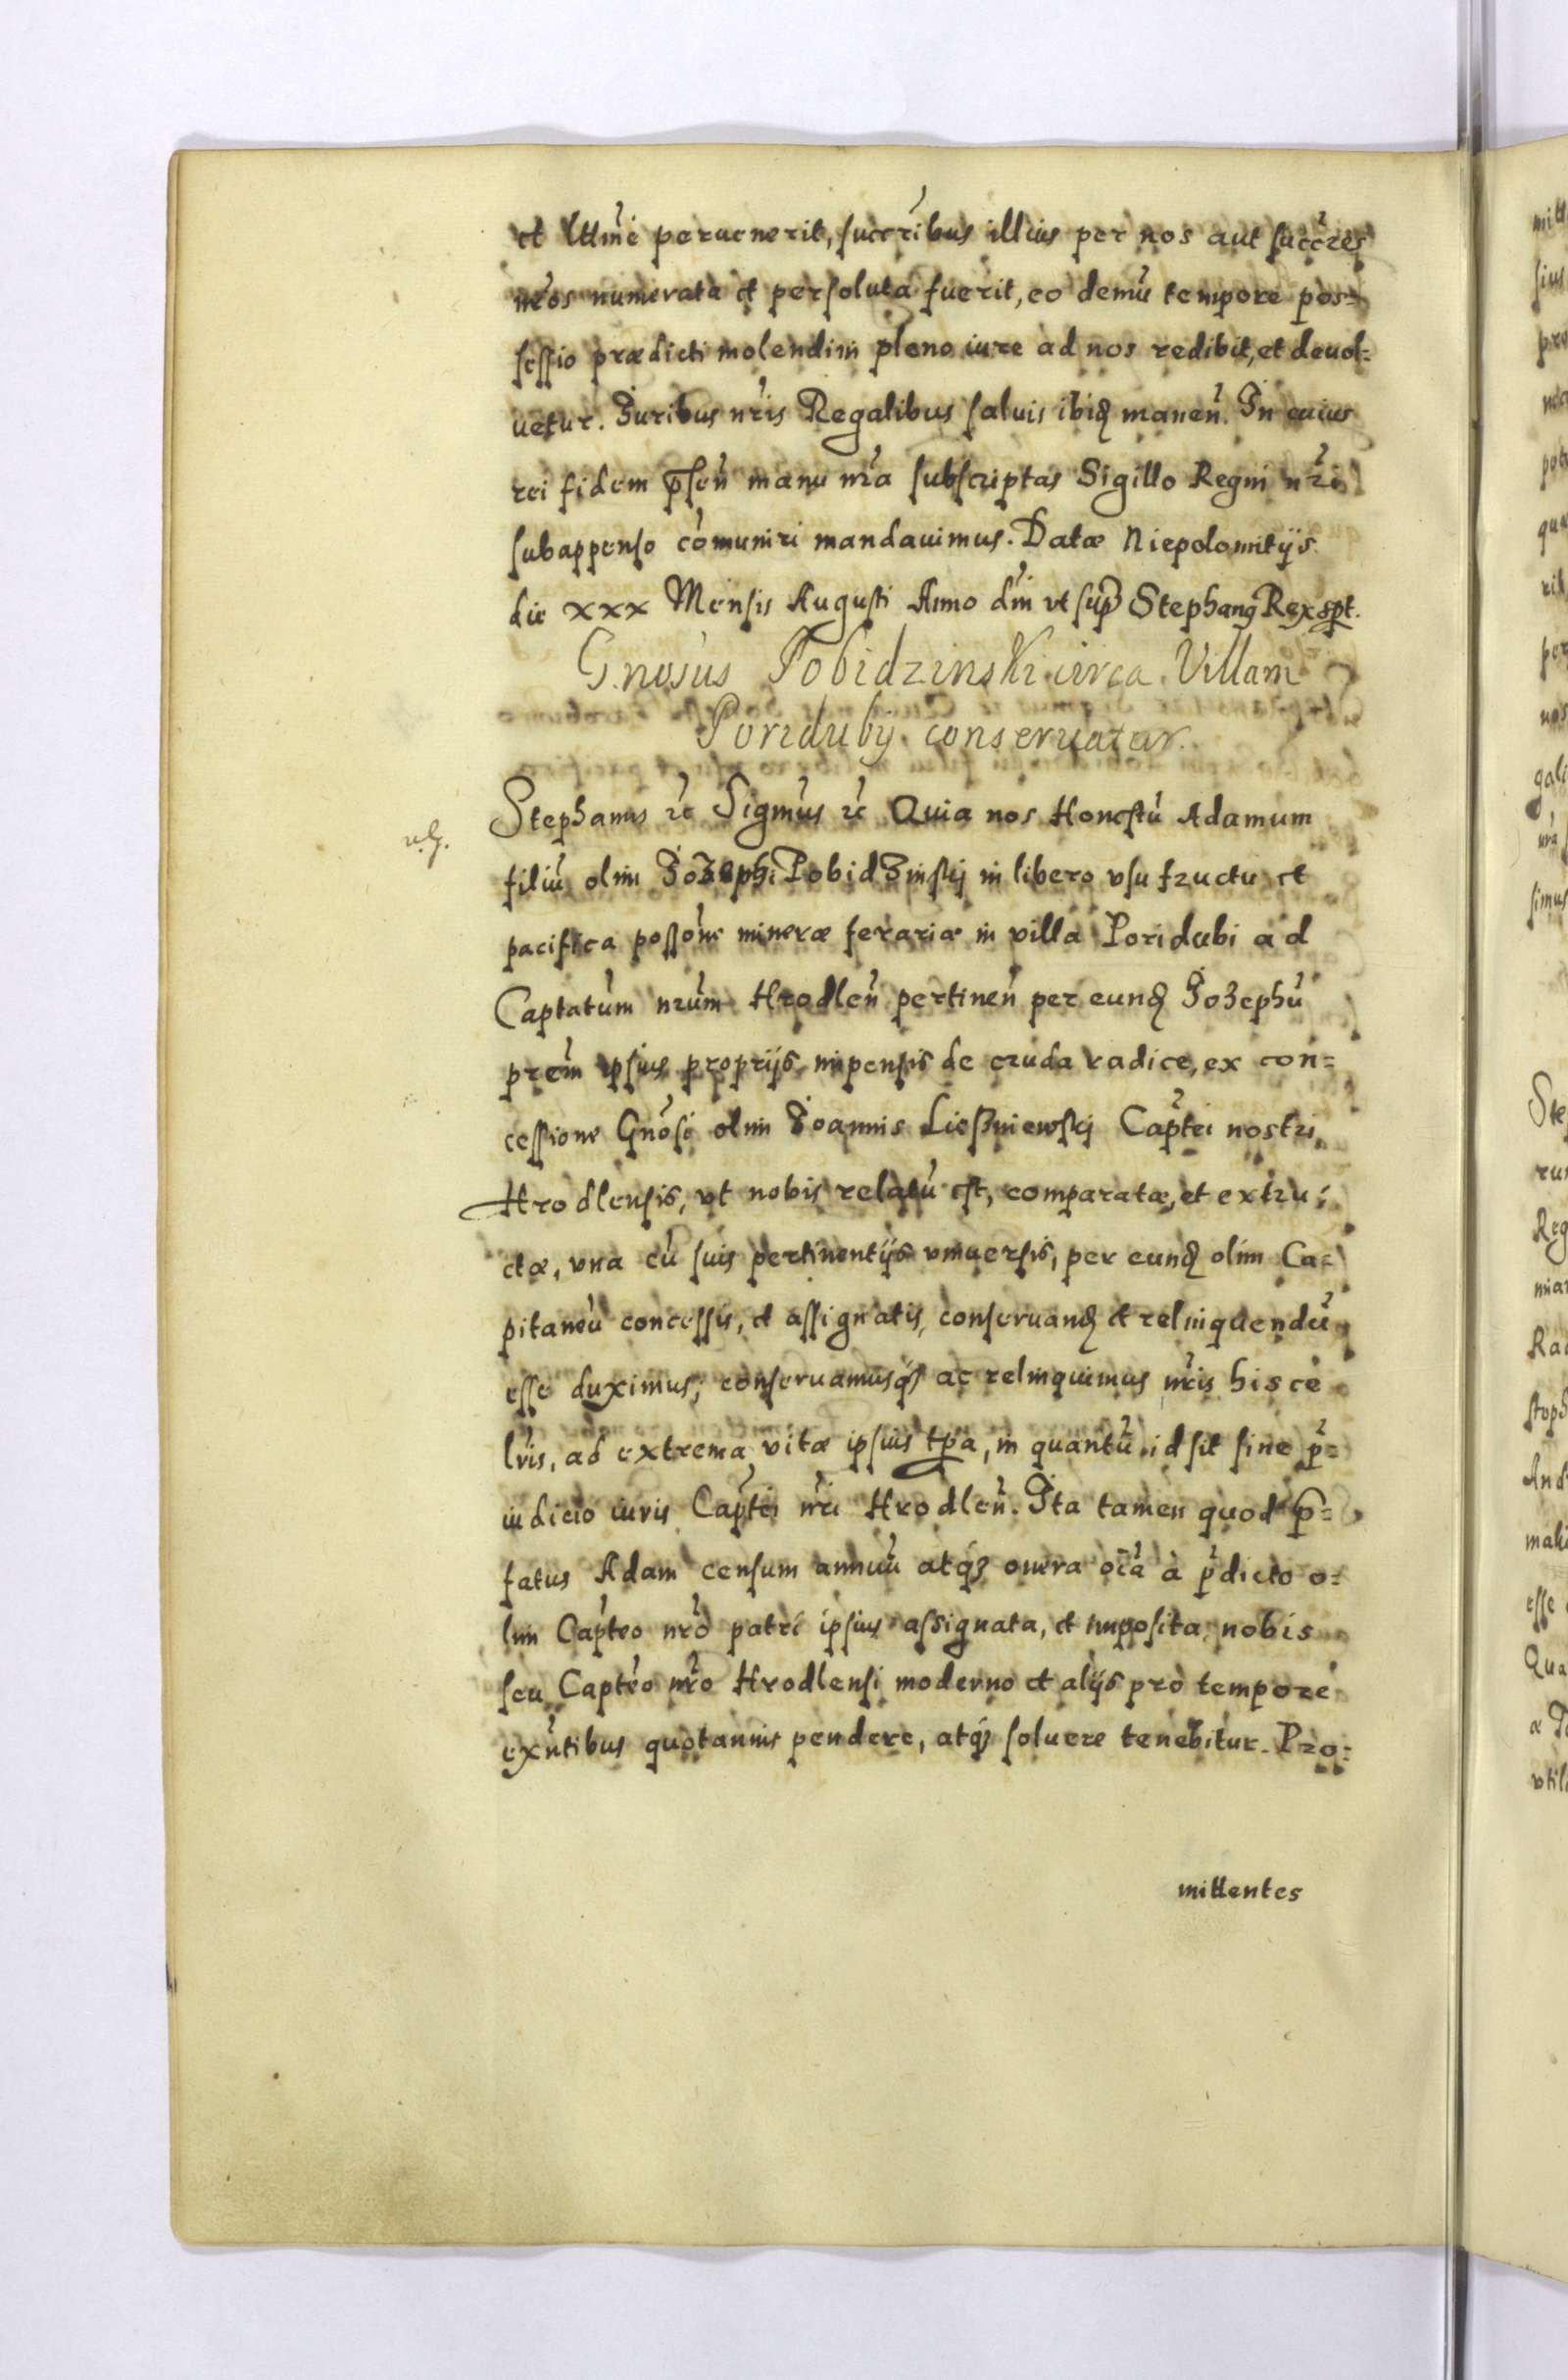 et lttme peruenerit, succribus illius per nos aut succres
nros numerata et persoluta fuerit, eo demū tempore pos=
sessio prædicti molendini pleno iure ad nos redibit, et deuol=
uetur. Iuribus nris Regalibus saluis ibid manen. In cuius
rei fidem psen manu nra subscriptas Sigillo Regni nri
subappenso comuniri mandauimus. Datæ Niepolomitijs
die xxx Mensis Augusti Anno dni vt sup Stephang Rex spt.
G.nosus Pobidzinski circa Villam
Poridubij conseruatur.
Stephanus rc Sigmus rc Quia nos Honestū Adamum
filiū olim Iozephi Pobidzinskij in libero vsu fructu et
pacifica possone mineræ ferariæ in villa Poridubi ad
Captatum nrum Hrodlen pertinen per eund Iozephū
prem ipsius proprijs impensis de cruda radice, ex con=
cessione Gnosi olim Ioannis Liesniewskj Captei nostri
Hrodlensis, vt nobis relatū est, comparatæ, et extru=
ctæ, vna cū suis pertinentijs vniuersis, per eund olim Ca=
pitaneū concessis, et assignatis, conseruand et relinquendū
esse duximus; conseruamusq3 ac relinquimus nris hisce
lris, ad extrema vitæ ipsius tpa, in quantū id sit sine p=
iudicio iuris Captei nri Hrodlen. Ita tamen quod p=
fatus Adam censum annuū atq3 onera oia à pdicto o=
lim Capteo nro patri ipsius assignata, et imposita nobis
seu Capteo nro Hrodlensi moderno et alijs pro tempore
exntibus quotannis pendere, atq3 soluere tenebitur. Pro=
mittentes